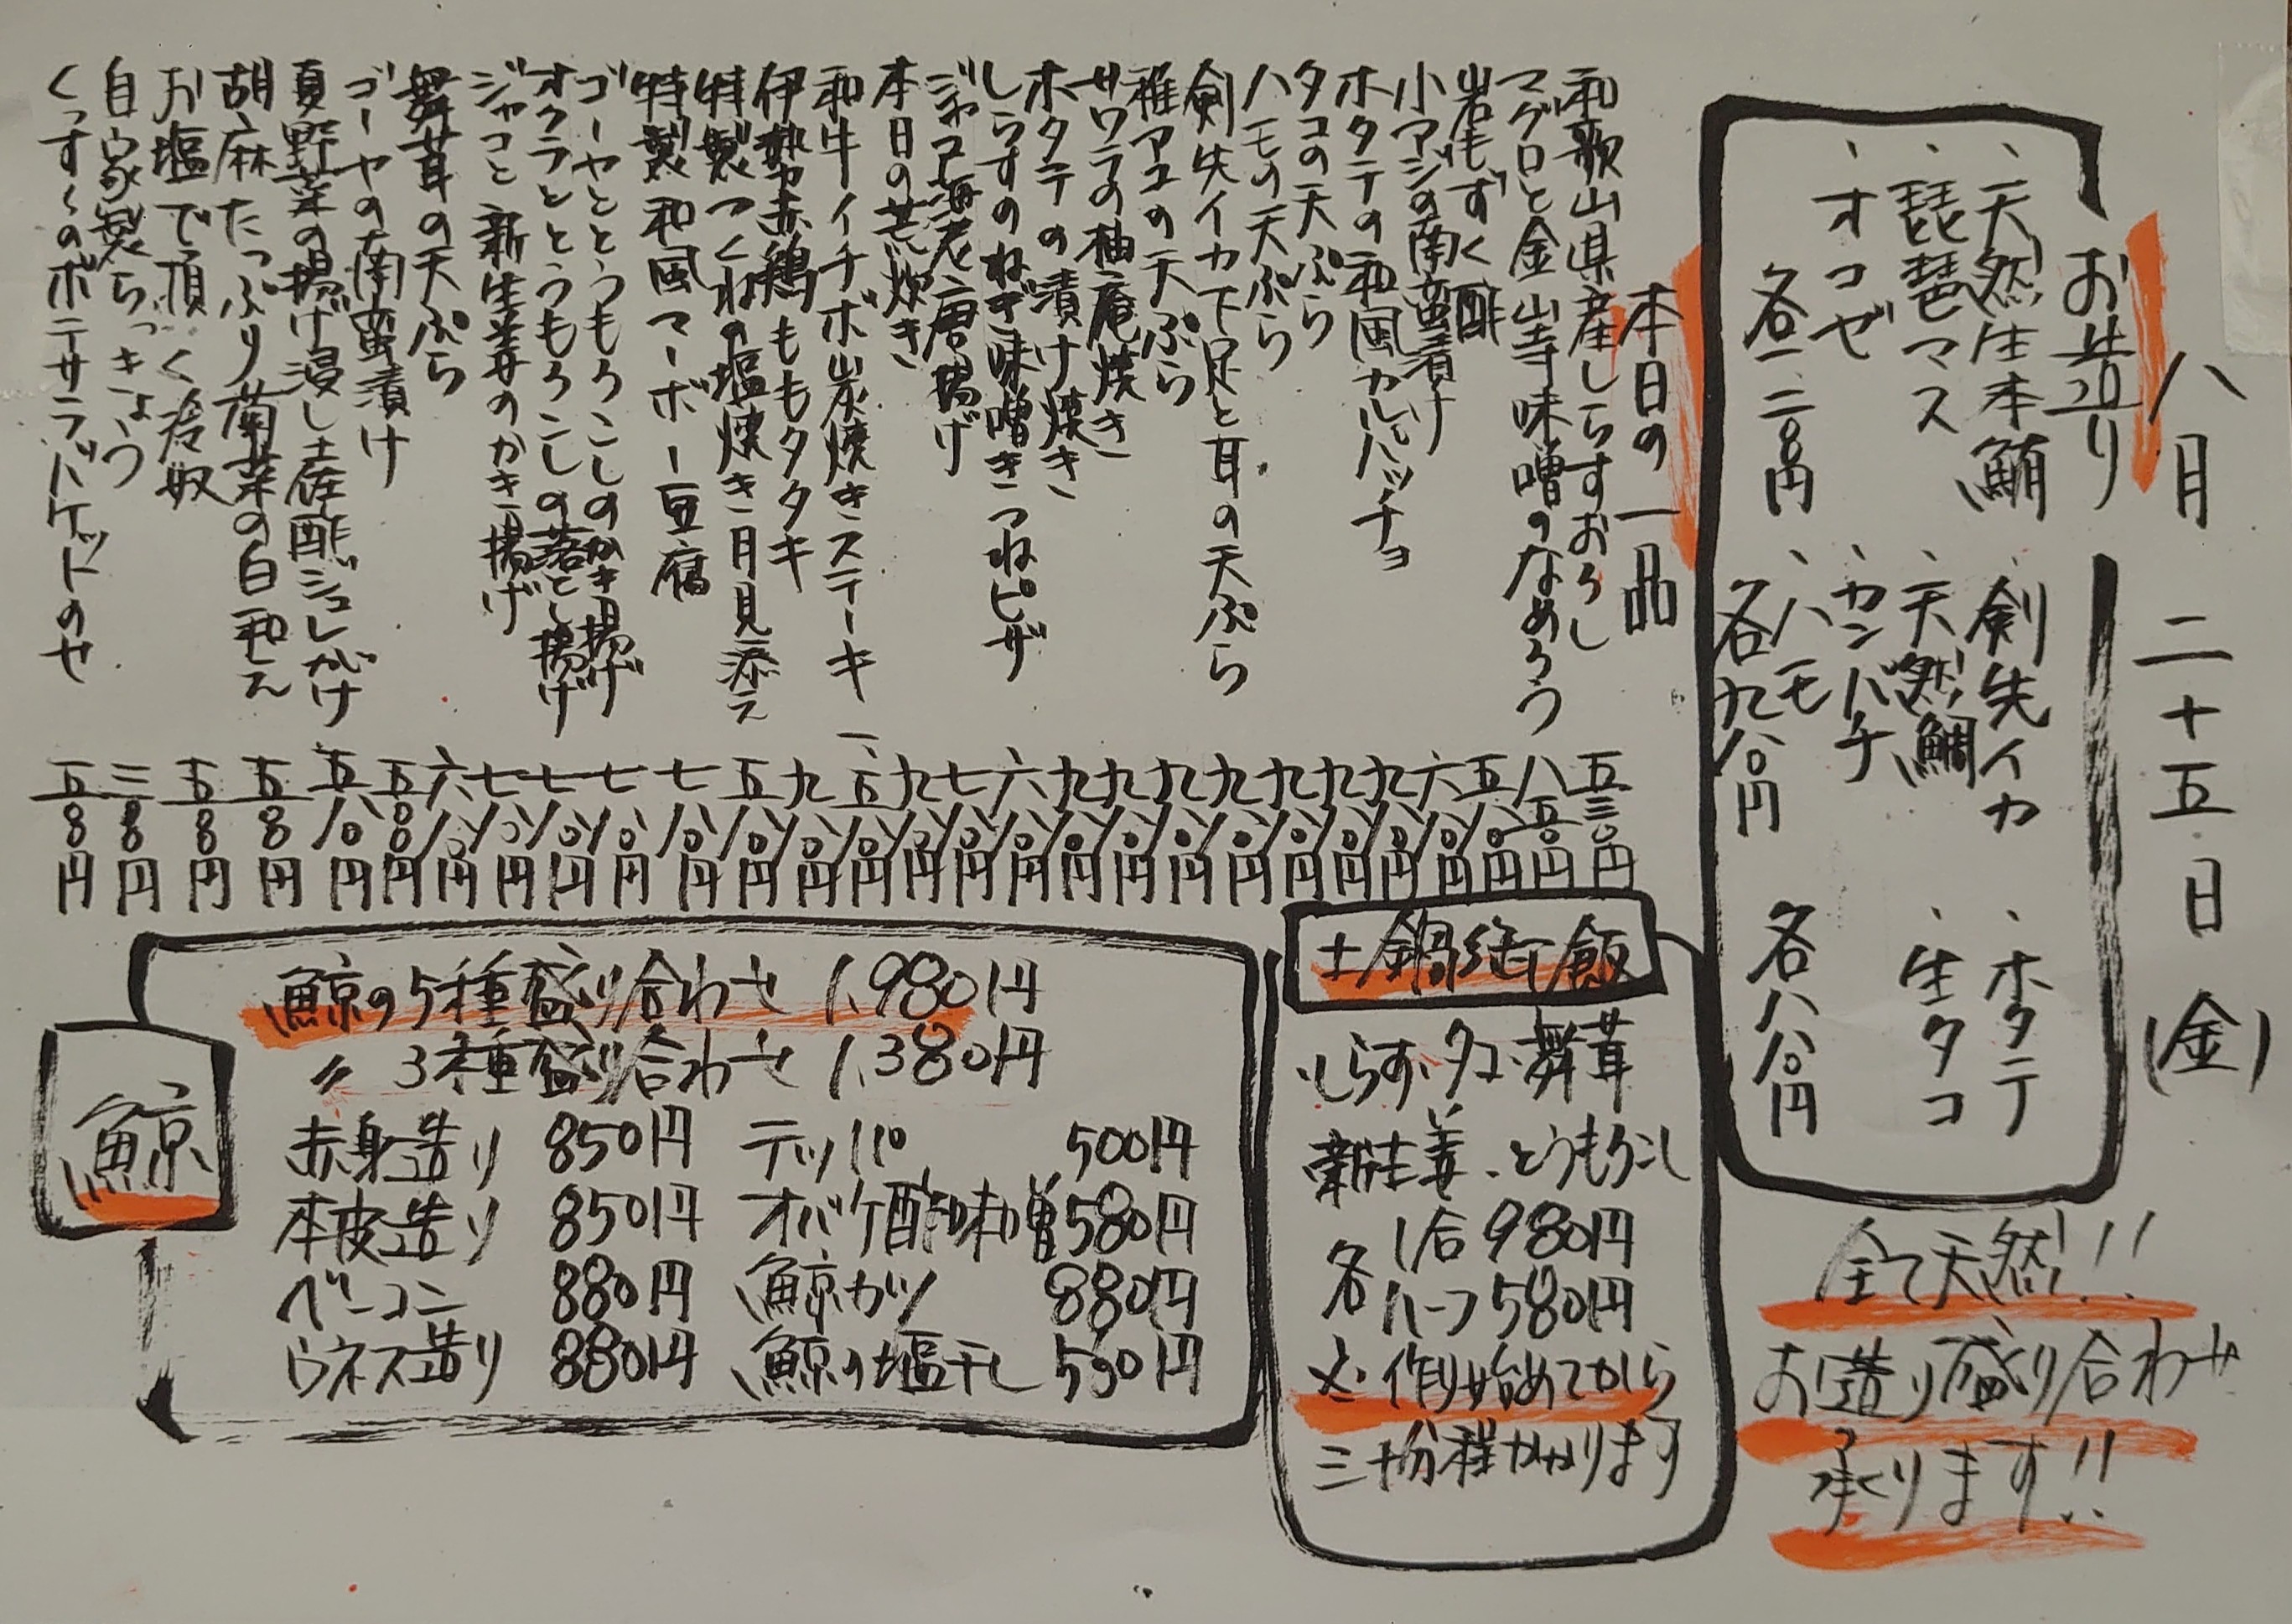 八月 二十五日 (金)
お造り
、天然生本鮪
、琵琶マス
、オコゼ
各一二八〇円
、剣先イカ
、天然鯛
、カンパチ
、ハモ
各九八〇円
、ホタテ
、生タコ
各八八〇円
全て天然!!
お造り盛り合わせ
承ります!!
本日の一品
和歌山県産しらすおろし 五三〇円
マグロと金山寺味噌のなめろう 八五〇円
岩もずく酢 五八〇円
小アジの南蛮漬け 六八〇円
ホタテの和風カルパッチョ 九八〇円
タコの天ぷら 九八〇円
ハモの天ぷら 九八〇円
剣先イカ下足と耳の天ぷら 九八〇円
稚アユの天ぷら 九八〇円
サワラの柚庵焼き 九八〇円
ホタテの漬け焼き 九八〇円
しらすのねぎ味噌きつねピザ 六八〇円
ジャコ海老唐揚げ 七八〇円
本日の荒炊き 九八〇円
和牛イチボ炭焼きステーキ 一、五八〇円
伊勢赤鶏ももタタキ 九八〇円
特製つくねの塩焼き月見添え 五八〇円
特製和風マーボー豆腐 七八〇円
ゴーヤととうもろこしのかき揚げ 七八〇円
オクラととうもろこしの落とし揚げ 七八〇円
ジャコと新生姜のかき揚げ 七八〇円
舞茸の天ぷら 六八〇円
ゴーヤの南蛮漬け 五〇〇円
夏野菜の揚げ浸し土佐酢ジュレがけ 五八〇円
胡麻たっぷり菊菜の白和え 五五〇円
お塩で頂く冷奴
自家製らっきょう
くっす〜のポテサラバケットのせ
土鍋御飯
・しらす・タコ・舞茸
新生姜・とうもろこし
各 1合 980円
各 ハーフ 580円
※作り始めてから
三十分程かかります
鯨
鯨の5種盛り合わせ 1,980円
〃 3種盛り合わせ 1,380円
赤身造り 850円 テッパ 500円
本皮造り 850円 オバケ酢味噌 580円
ベーコン 880円 鯨カツ 880円
ウネス造り 880円 鯨の塩干し